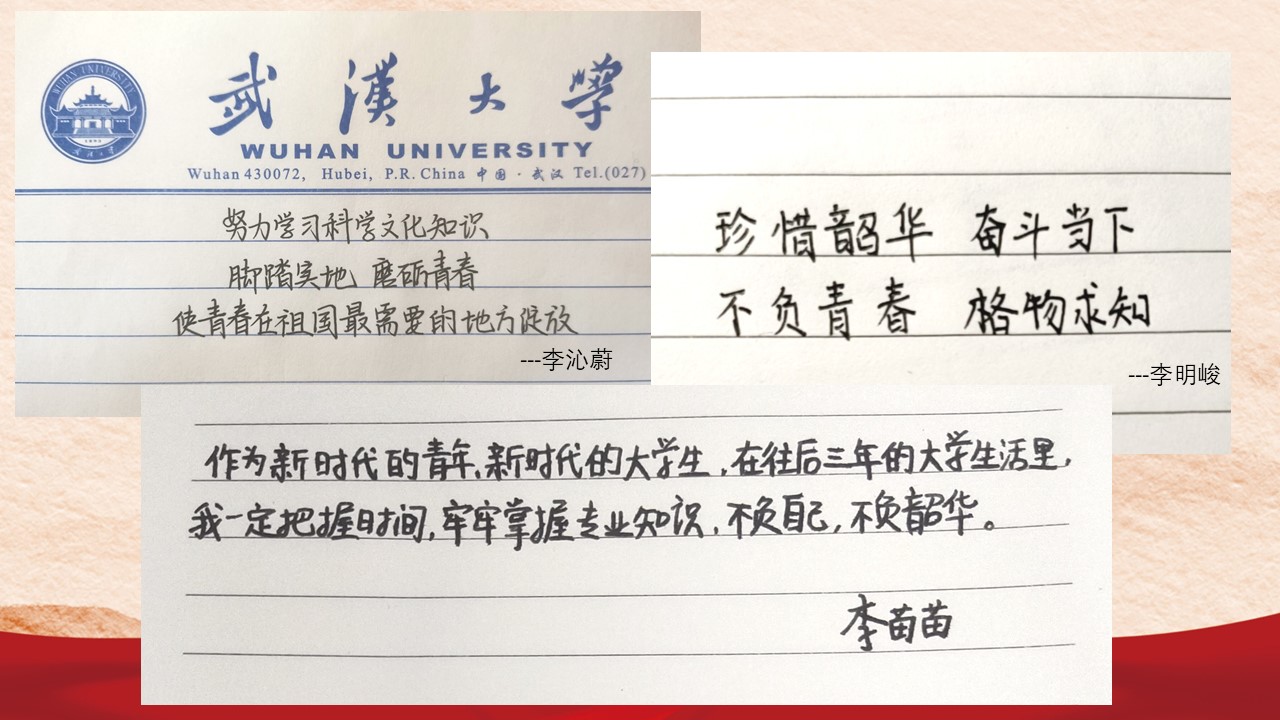 WUHAN UNIVERSITY
武漢大學
WUHAN UNIVERSITY
Wuhan 430072, Hubei, P.R. China 中国·武汉 Tel.(027)
努力学习科学文化知识
脚踏实地 磨砺青春
使青春在祖国最需要的地方绽放
---李沁蔚
珍惜韶华 奋斗当下
不负青春 格物求知
---李明峻
作为新时代的青年,新时代的大学生,在往后三年的大学生活里,
我一定把握时间,牢牢掌握专业知识,不负自己,不负韶华。
李苗苗